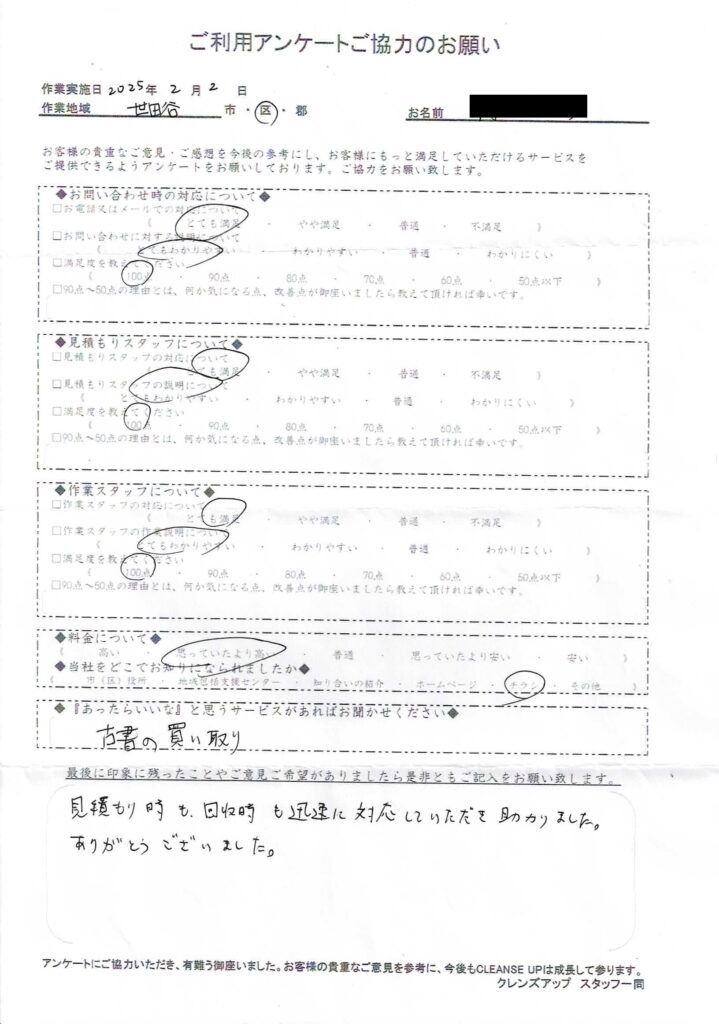 ご利用アンケートご協力のお願い
作業実施日 2025年 2 月 2 日
作業地域 世田谷 市・区・郡 お名前
お客様の貴重なご意見・ご感想を今後の参考にし、お客様にもっと満足していただけるサービスを
ご提供できるようアンケートをお願いしております。ご協力をお願い致します。
◆お問い合わせ時の対応について◆
□お電話又はメールでの対応について
( とても満足 ・ やや満足 ・ 普通 ・ 不満足 )
□お問い合わせに対する説明について
( とてもわかりやすい ・ わかりやすい ・ 普通 ・ わかりにくい )
□満足度を教えてください
( 100点 ・ 90点 ・ 80点 ・ 70点 ・ 60点 ・ 50点以下 )
□90点~50点の理由とは、何か気になる点、改善点が御座いましたら教えて頂ければ幸いです。
◆見積もりスタッフについて◆
□見積もりスタッフの対応について
( とても満足 ・ やや満足 ・ 普通 ・ 不満足 )
□見積もりスタッフの説明について
( とてもわかりやすい ・ わかりやすい ・ 普通 ・ わかりにくい )
□満足度を教えてください
( 100点 ・ 90点 ・ 80点 ・ 70点 ・ 60点 ・ 50点以下 )
□90点~50点の理由とは、何か気になる点、改善点が御座いましたら教えて頂ければ幸いです。
◆作業スタッフについて◆
□作業スタッフの対応について
( とても満足 ・ やや満足 ・ 普通 ・ 不満足 )
□作業スタッフの作業説明について
( とてもわかりやすい ・ わかりやすい ・ 普通 ・ わかりにくい )
□満足度を教えてください
( 100点 ・ 90点 ・ 80点 ・ 70点 ・ 60点 ・ 50点以下 )
□90点~50点の理由とは、何か気になる点、改善点が御座いましたら教えて頂ければ幸いです。
◆料金について◆
( 高い ・ 思っていたより高い ・ 普通 ・ 思っていたより安い ・ 安い )
◆当社をどこでお知りになられましたか◆
( 市(区)役所 ・ 地域包括支援センター ・ 知り合いの紹介 ・ ホームページ ・ チラシ ・ その他 )
◆『あったらいいな』と思うサービスがあればお聞かせください◆
古書の買い取り
最後に印象に残ったことやご意見ご希望がありましたら是非ともご記入をお願い致します。
見積もり時も、回収時も迅速に対応していただき助かりました。
ありがとうございました。
アンケートにご協力いただき、有難う御座いました。お客様の貴重なご意見を参考に、今後もCLEANSE UPは成長して参ります。
クレンズアップ スタッフ一同